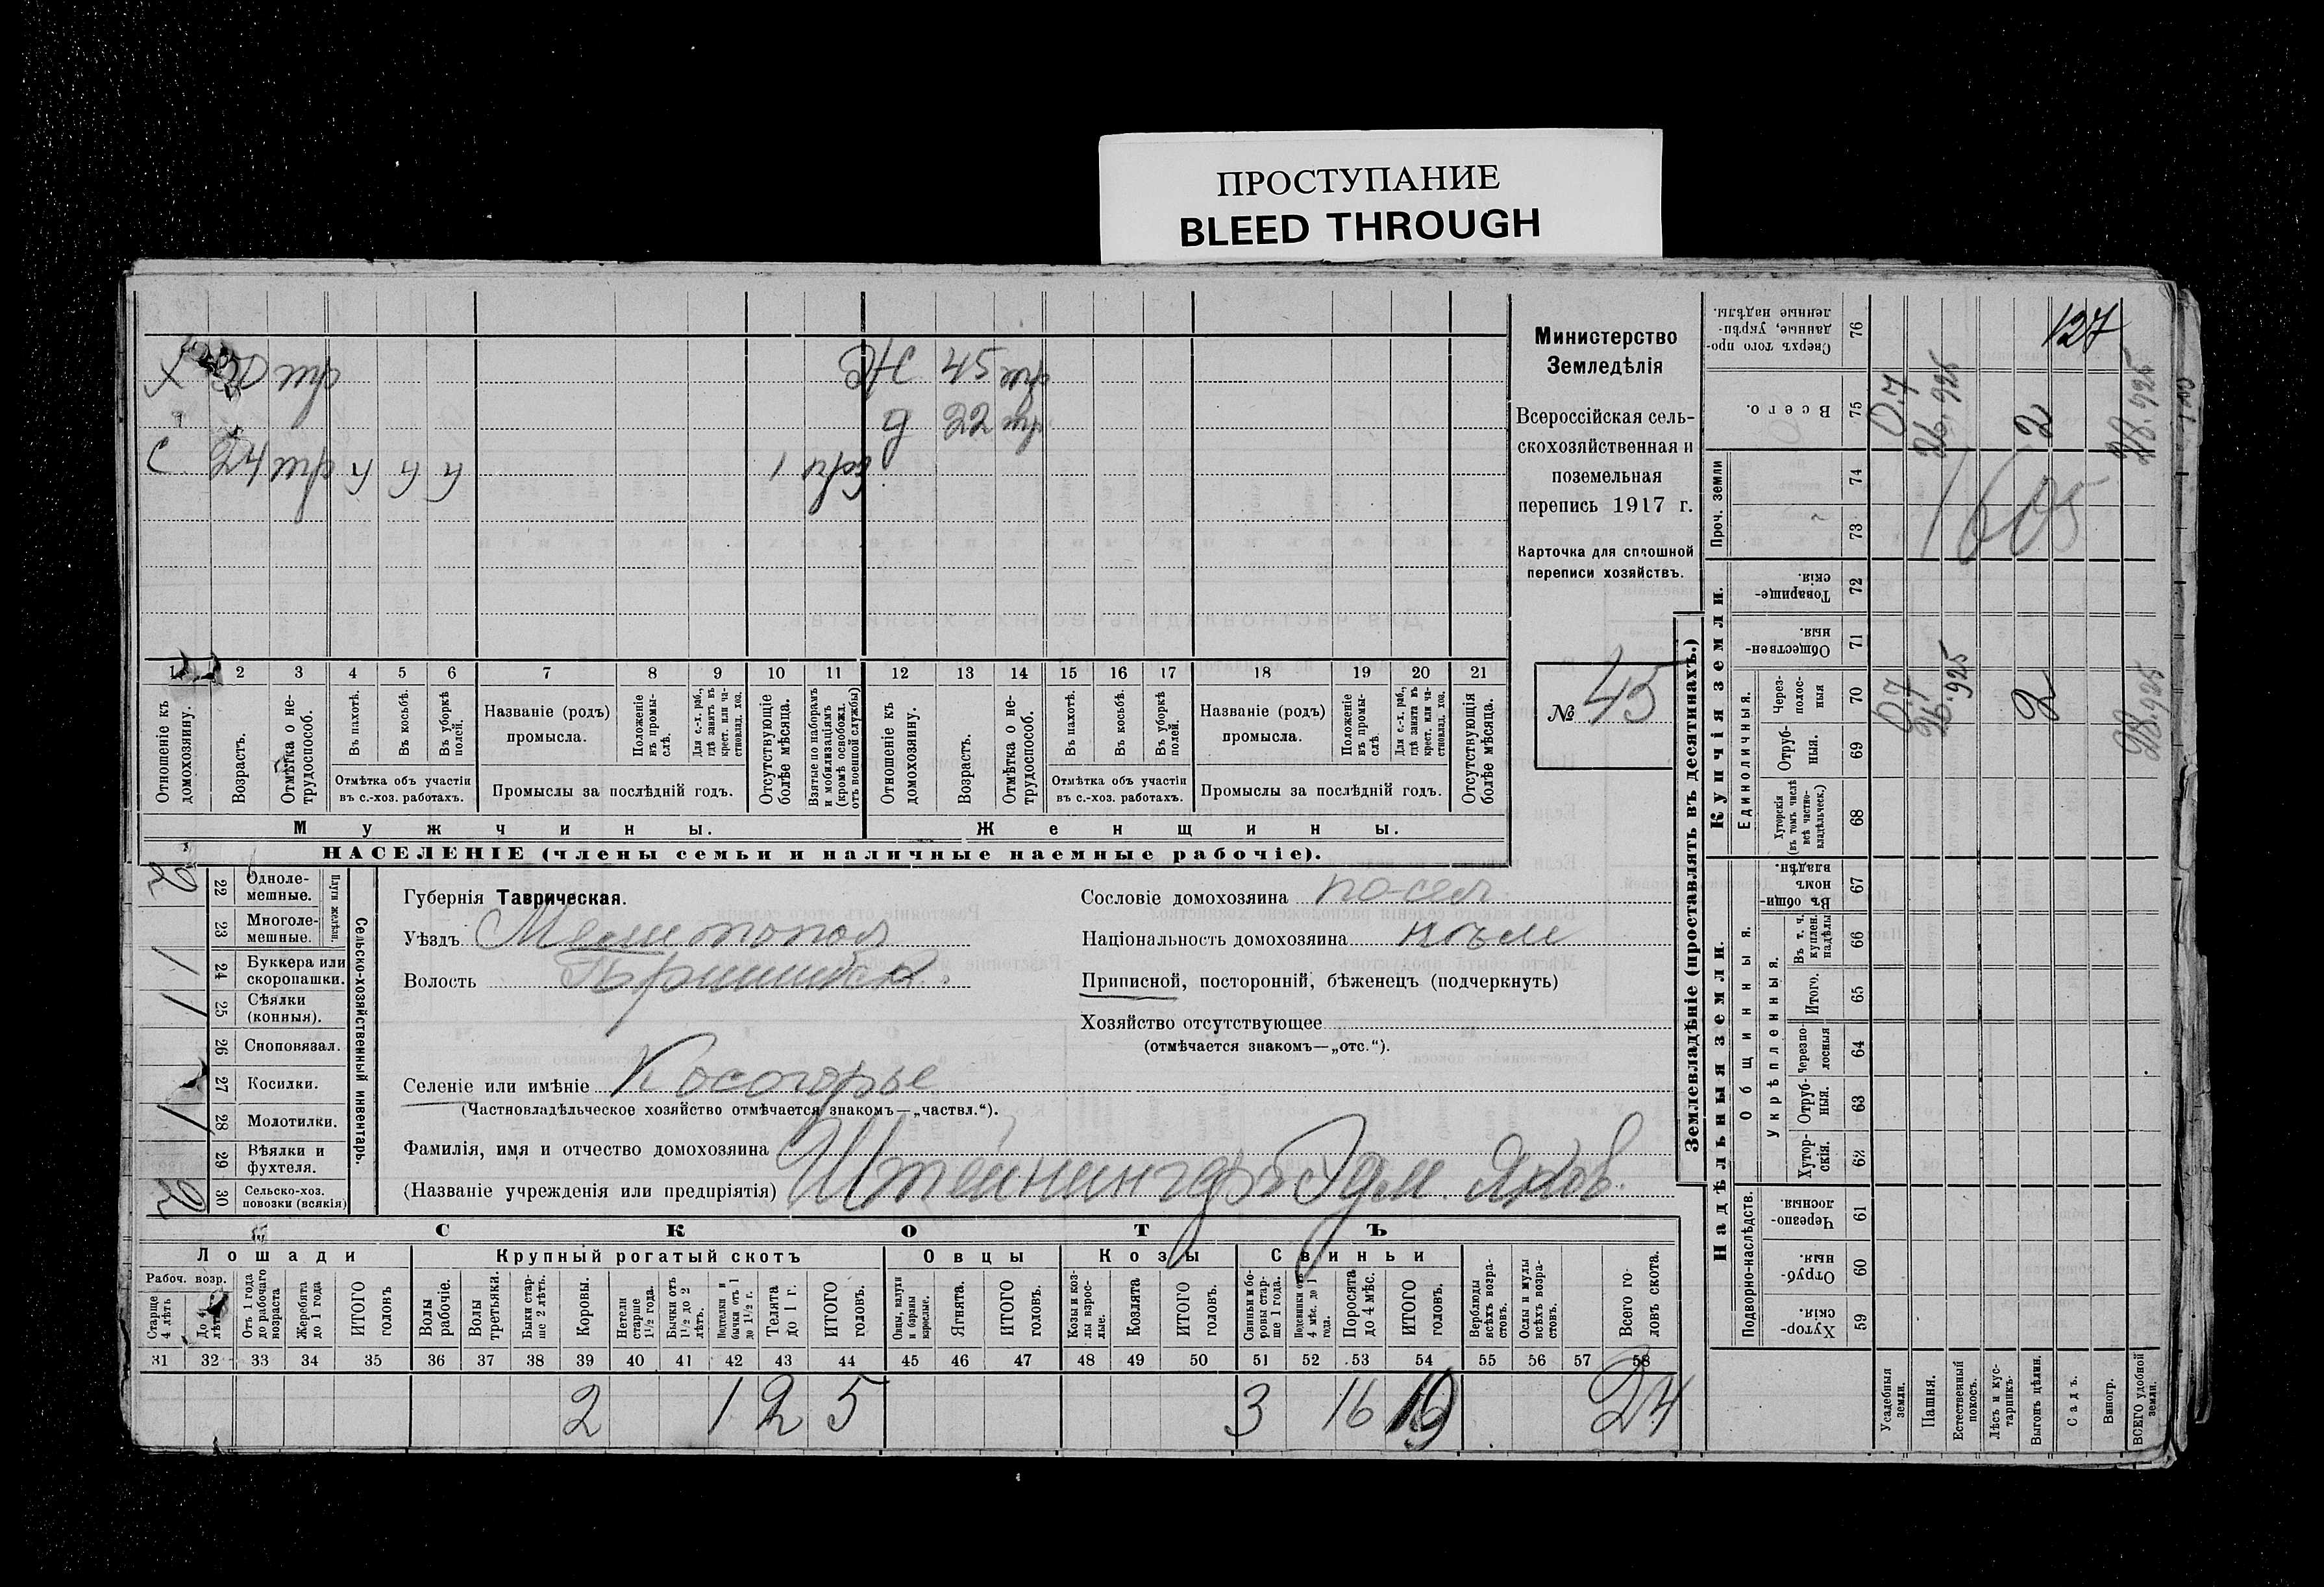 ПРОСТУПАНИЕ
BLEED THROUGH
127
Х 50 тр Ж 45 тр
д 22 тр
С 24 тр ч ч ч 1
1 2 3 4 5 6 7 8 9 10 11 12 13 14 15 16 17 18 19 20 21
Отношеніе къ домохозяину.
Возрастъ.
Отмѣтка о не-трудоспособ.
Въ пахотѣ.
Въ косьбѣ.
Въ уборкѣ полей.
Отмѣтка объ участіи въ с.-хоз. работахъ.
Названіе (родъ) промысла.
Положеніе въ промы-слѣ.
Для с.-х. раб., гдѣ занятъ въ крест. или ча-стновлад. хоз.
Промыслы за послѣдній годъ.
Отсутствующіе болѣе мѣсяца.
Взятые по наборамъ и мобилизаціямъ (кромѣ освобожд. отъ военной службы)
Отношеніе къ домохозяину.
Возрастъ.
Отмѣтка о не-трудоспособ.
Въ пахотѣ.
Въ косьбѣ.
Въ уборкѣ полей.
Отмѣтка объ участіи въ с.-хоз. работахъ.
Названіе (родъ) промысла.
Положеніе въ промы-слѣ.
Для с.-х. раб., гдѣ занята въ крест. или ча-стновлад. хоз.
Промыслы за послѣдній годъ.
Отсутствующія болѣе мѣсяца.
Мужчины. Женщины.
НАСЕЛЕНІЕ (члены семьи и наличные наемные рабочіе).
Министерство
Земледѣлія
Всероссійская сель-
скохозяйственная и
поземельная
перепись 1917 г.
Карточка для сплошной
переписи хозяйствъ.
№ 45
Сельско-хозяйственный инвентарь.
Плуги желѣзн.
2 22 Одноле-мешные.
23 Многоле-мешные.
1 24 Буккера или скоропашки.
1 25 Сѣялки (конныя).
26 Сноповязал.
27 Косилки.
1 28 Молотилки.
29 Вѣялки и фухтеля.
2 30 Сельско-хоз. повозки (всякія)
Губернія Таврическая.
Уѣздъ Мелитопол
Волость
Селеніе или имѣніе Косогорье
(Частновладѣльческое хозяйство отмѣчается знакомъ—„частвл.“).
Фамилія, имя и отчество домохозяина
(Названіе учрежденія или предпріятія)
Сословіе домохозяина посел.
Національность домохозяина нѣм
Приписной, посторонній, бѣженецъ (подчеркнуть)
Хозяйство отсутствующее
(отмѣчается знакомъ—„отс.“).
СКОТЪ
Лошади Крупный рогатый скотъ Овцы Козы Свиньи
Рабоч. возр.
Старше 4 лѣтъ
До 4 лѣтъ
Отъ 1 года до рабочаго возраста
Жеребята до 1 года
ИТОГО головъ
Волы рабочіе.
Волы третьяки.
Быки стар-ше 2 лѣтъ.
Коровы.
Нетели старше 1½ года.
Бычки отъ 1½ до 2 лѣтъ.
Подтелки и бычки отъ 1 до 1½ г.
Телята до 1 г.
ИТОГО головъ.
Овцы, валухи и бараны взрослые.
Ягнята.
ИТОГО головъ.
Козы и коз-лы взрос-лые.
Козлята
ИТОГО головъ.
Свиньи и бо-ровы стар-ше 1 года.
Подсвинки отъ 4 мѣс. до 1 года.
Поросята до 4 мѣс.
ИТОГО головъ.
Верблюды всѣхъ возра-стовъ.
Ослы и мулы всѣхъ возра-стовъ.
Всего го-ловъ скота.
31 32 33 34 35 36 37 38 39 40 41 42 43 44 45 46 47 48 49 50 51 52 53 54 55 56 57 58
2 1 2 5 3 16 19 24
Землевладѣніе (проставлять въ десятинахъ.)
Сверхъ того про-данные, укрѣп-ленные надѣлы. 76
Всего. 75 0.7 26.925 2 28.925
Проч. земли 74 73
1605
Купчія земли.
Товарище-скія. 72
Обществен-ныя. 71
Единоличныя.
Через-полос-ныя 70 0.7 26.925 2 28.925
Отруб-ныя. 69
Хуторскія (въ томъ числѣ всѣ частно-владѣльческ.) 68
Надѣльныя земли.
Общинныя.
Въ общин-номъ владѣн. 67
Укрѣпленныя.
Въ т. ч. куплен. надѣлы 66
Итого. 65
Черезпо-лосныя 64
Отруб-ныя. 63
Хутор-скія. 62
Подворно-наслѣдств.
Черезпо-лосныя 61
Отруб-ныя. 60
Хутор-скія. 59
Усадебныя земли.
Пашня.
Естественный покосъ.
Лѣсъ и кус-тарникъ.
Выгонъ цѣлин.
Садъ.
Виногр.
ВСЕГО удобной земли.